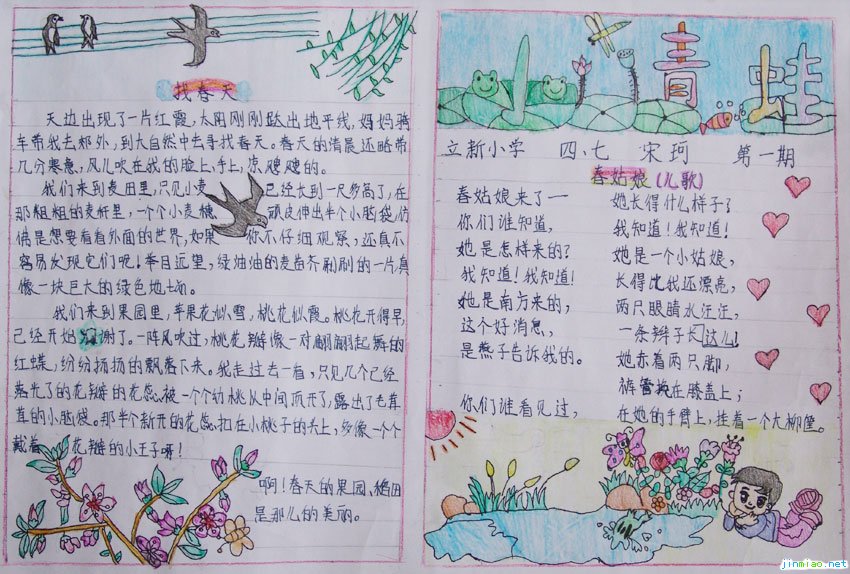 找春天
天边出现了一片红霞,太阳刚刚跃出地平线,妈妈骑
车带我去郊外,到大自然中去寻找春天。春天的清晨还略带
几分寒意,风儿吹在我的脸上、手上,凉飕飕的。
我们来到麦田里,只见小麦已经长到一尺多高了,在
那粗粗的麦杆里,一个个小麦穗顽皮伸出半个小脑袋,仿
偶是想要看看外面的世界,如果你不仔细观察,还真不
容易发现它们呢!举目远望,绿油油的麦苗齐刷刷的一片,真
像一块巨大的绿色地毯。
我们来到果园里,苹果花似雪,桃花似霞。桃花开得早,
已经开始凋谢了。一阵风吹过,桃花瓣像一对对翩翩起舞的
红蝶,纷纷扬扬的飘落下来。我走过去一看,只见几个已经
落光了的花瓣的花蕊,被一个个幼桃从中间顶开了,露出了毛茸
茸的小脑袋。那半个新开的花蕊,扣在小桃子的头上,多像一个个
戴着花瓣的小王子呀!
啊!春天的果园、稻田
是那么的美丽。
青蛙
立新小学 四、七 宋珂 第一期
春姑娘(儿歌)
春姑娘来了—
你们谁知道,
她是怎样来的?
我知道!我知道!
她是南方来的,
这个好消息,
是燕子告诉我的。
你们谁看见过,
她长得什么样子?
我知道!我知道!
她是一个小姑娘,
长得比我还漂亮,
两只眼睛水汪汪,
一条辫子长这儿!
她赤着两只脚,
裤管挽在膝盖上;
在她的手臂上,挂着一个大柳筐。
jinmiao.net